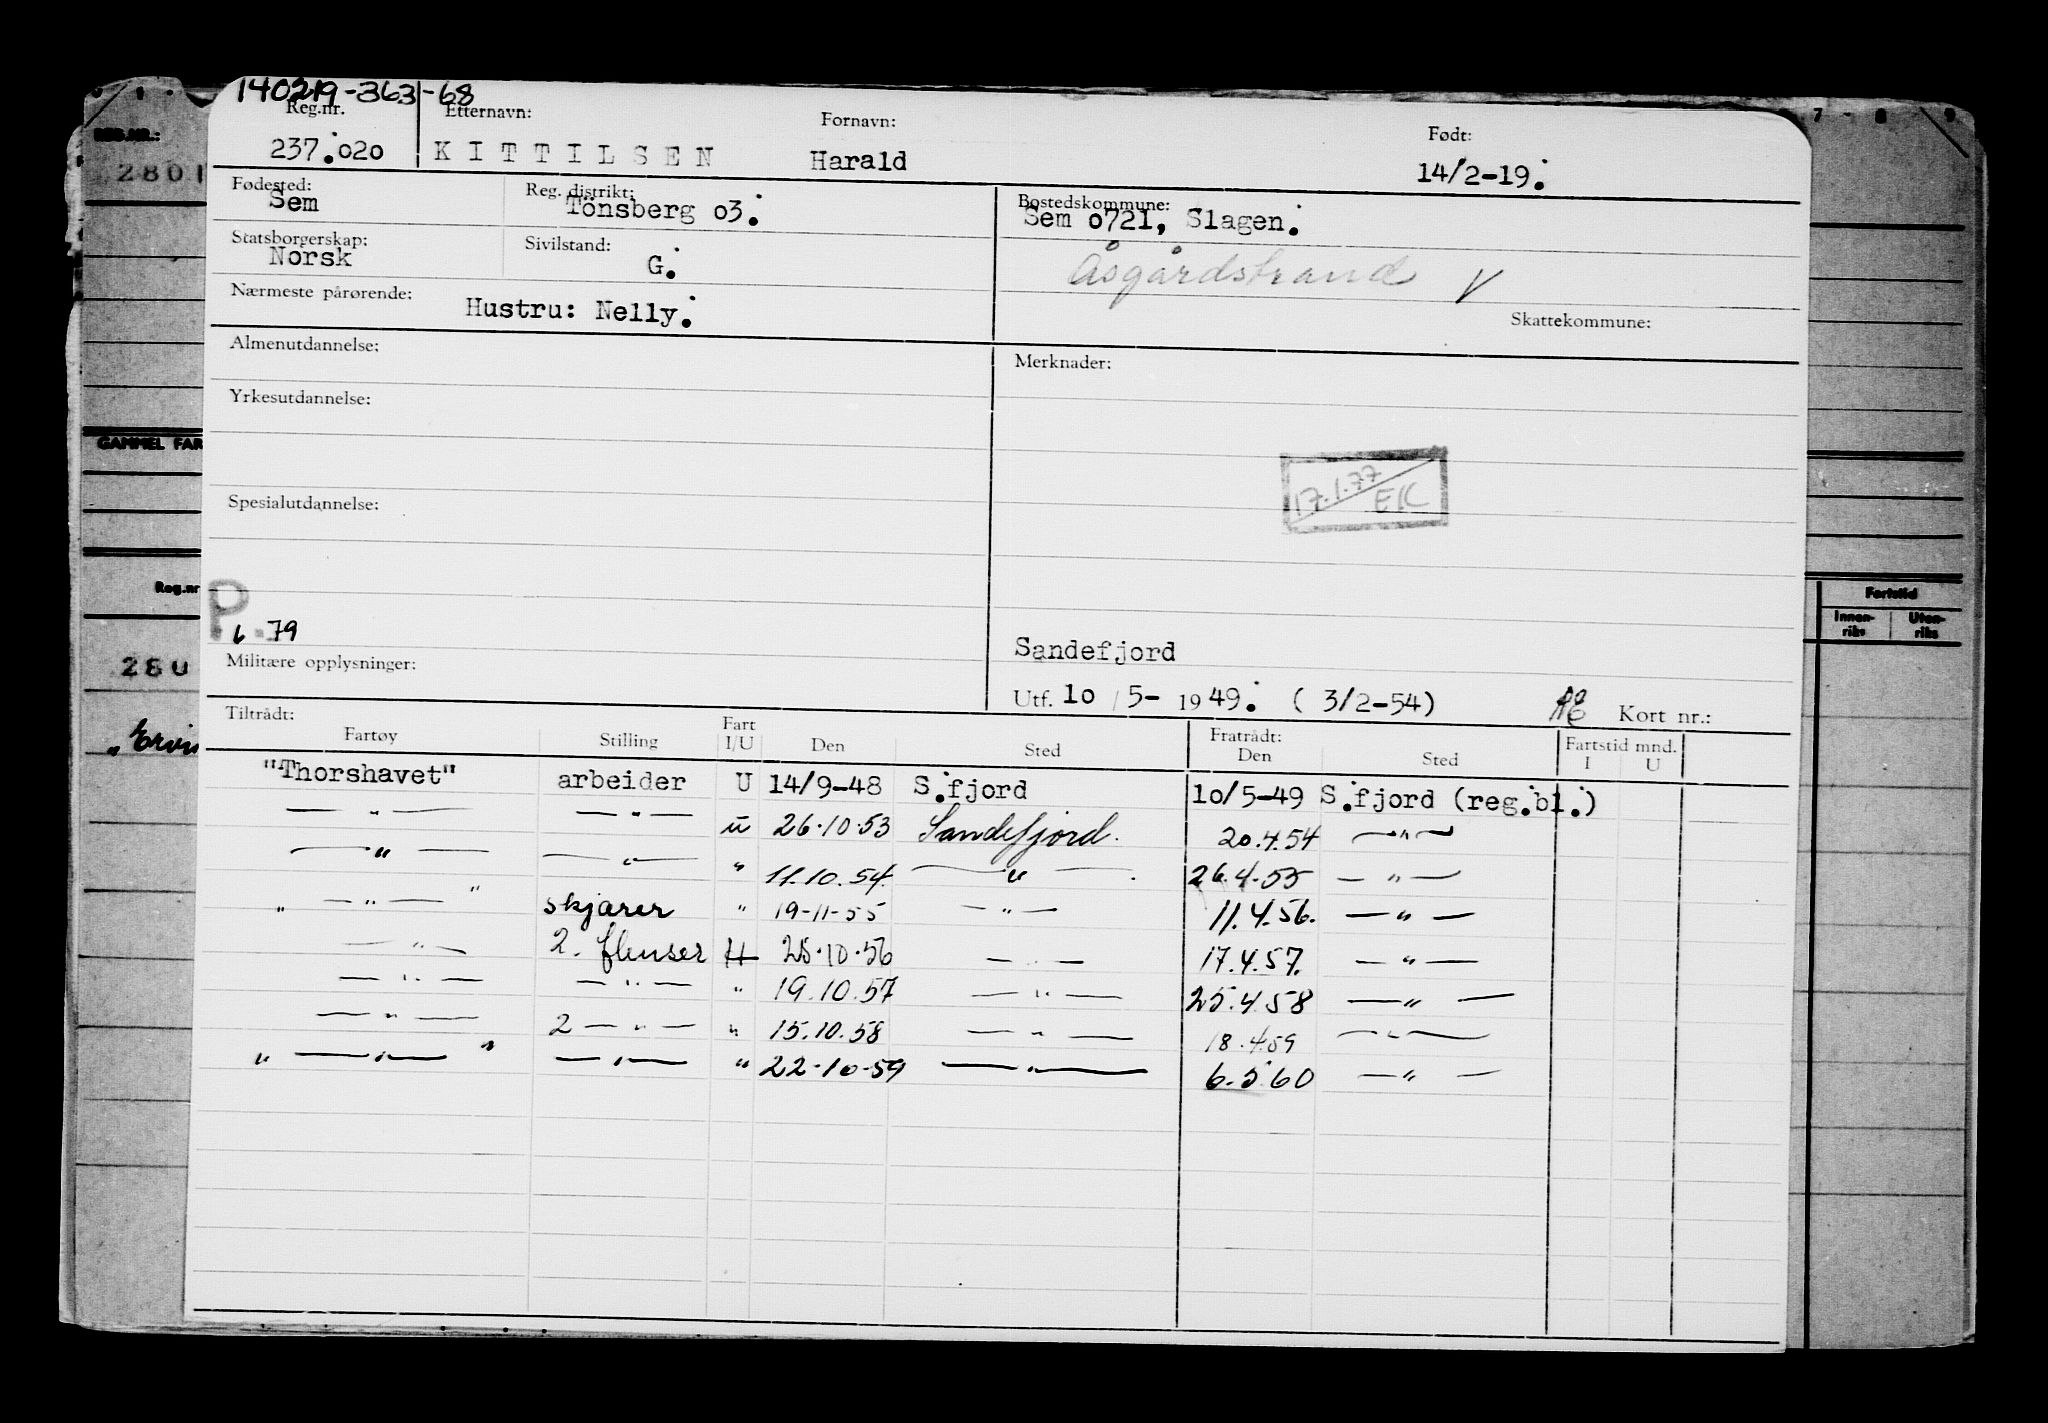 140219-363-68
Reg.nr. Etternavn: Fornavn: Født:
237.020 KITTILSEN Harald 14/2-19.
Fødested: Reg. distrikt: Bostedskommune:
Sem Tönsberg o3. Sem o721, Slagen.
Statsborgerskap: Sivilstand:
Norsk G. Åsgårdstrand V
Nærmeste pårørende: Hustru: Nelly. Skattekommune:
Almenutdannelse: Merknader:
Yrkesutdannelse:
17.1.77 EK
Spesialutdannelse:
P.
6 79 Sandefjord
Militære opplysninger:
Utf. 1o / 5- 1949. ( 3/2-54) Kort nr.:
Tiltrådt: Fart Fratrådt: Fartstid mnd.
Fartøy Stilling I/U Den Sted Den Sted I U
"Thorshavet" arbeider U 14/9-48 S.fjord 1o/5-49 S.fjord (reg.bl.)
— " — — " — u 26.10.53 Sandefjord. 20.4.54 — " —
— " — — " — " 11.10.54. — " — 26.4.55 — " —
" — " — " skjærer " 19-11-55 — " — 11.4.56. — " —
— " — 2. flenser U 25.10.56 — " — 17.4.57. — " —
— " — — " — " 19.10.57 — " — 25.4.58 — " —
— " — 2 — " — " 15.10.58 — " — 18.4.59 — " —
" — " — " — " — " 22-10-59 — " — 6.5.60 — " —
REG.NR.:
2801
GAMMEL FAR
Reg.nr
280
7 - 8 9
Fartstid
Innen-riks Uten-riks